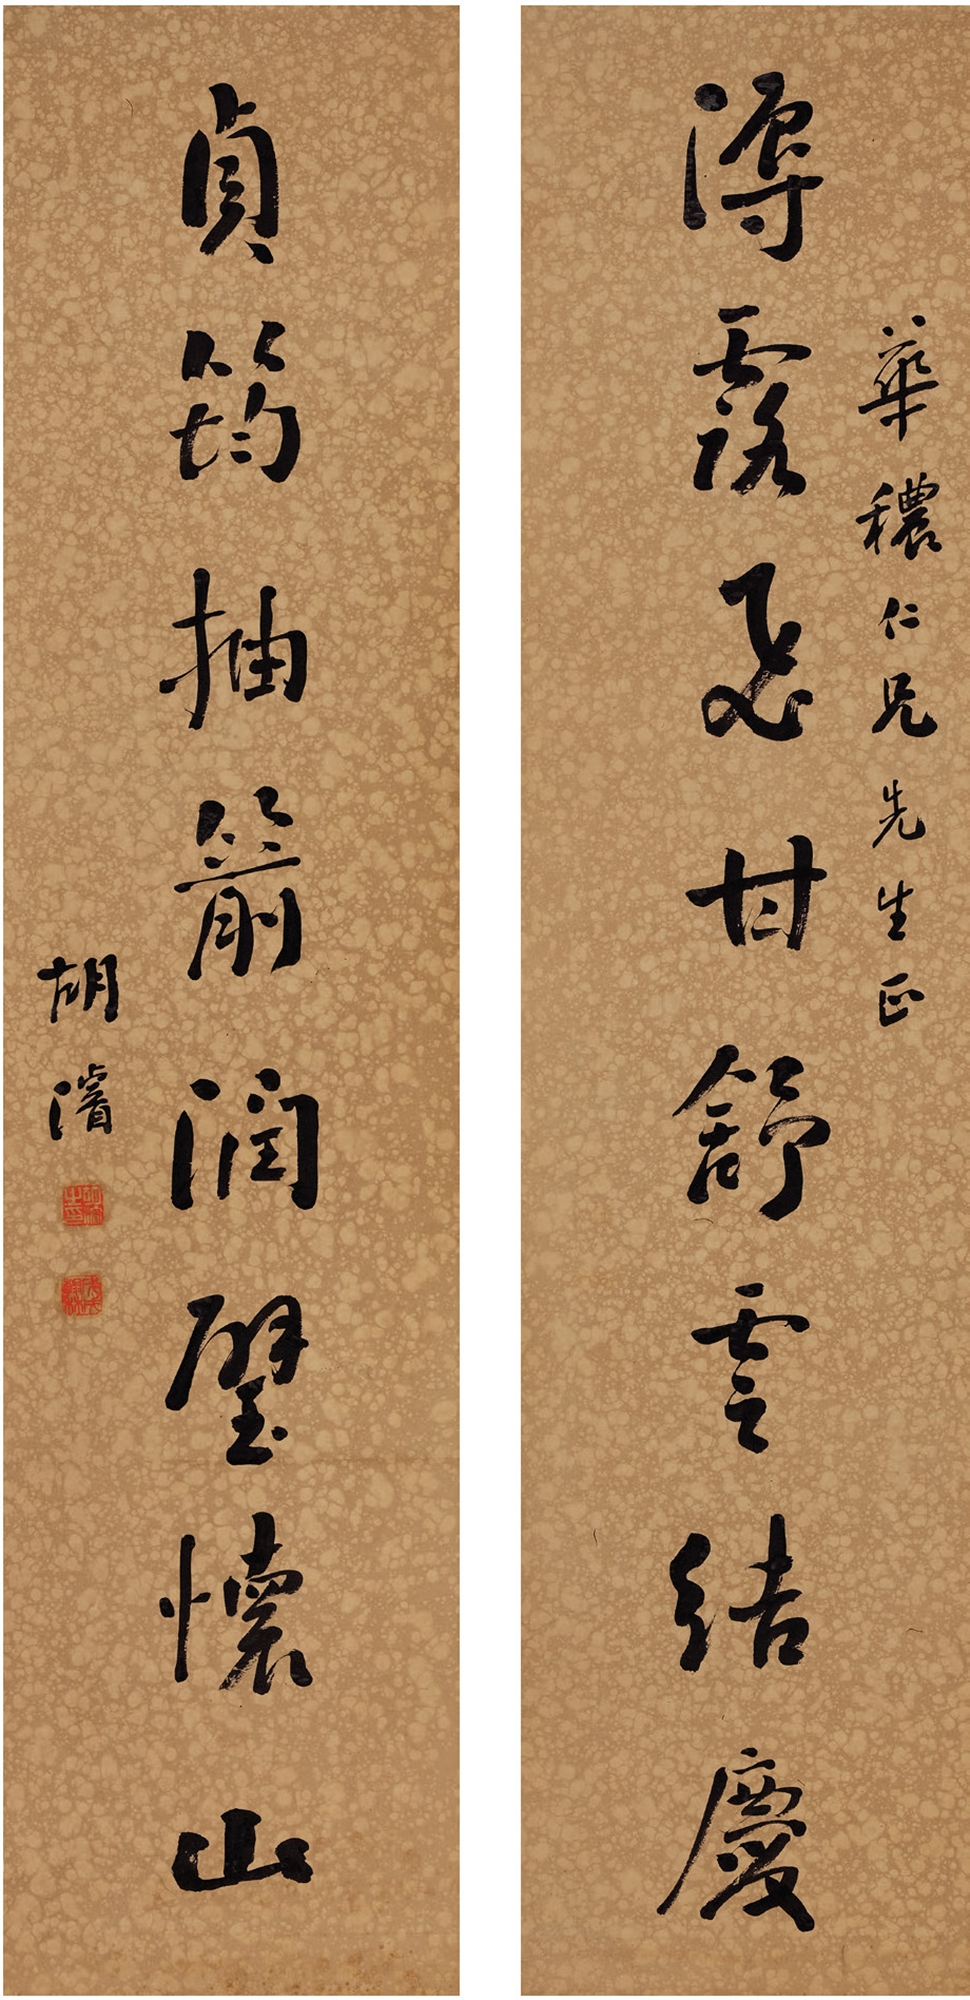 華穠仁兄先生正
溽露飛甘舒雲結慶
貞筠抽箭潤璧懷山
胡濬